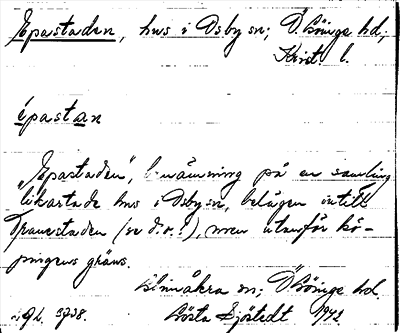 Epastaden, hus i Osby sn; Ö. Göinge hd;
Krist. l.
épastan
"Epastaden", benämning på en samling
likartade hus i Osby sn, belägen intill
Tranestaden (se d.o.!), men utanför kö-
pingens gräns.
Glimåkra sn; Ö. Göinge hd.
5738. Gösta Sjöstedt 1942